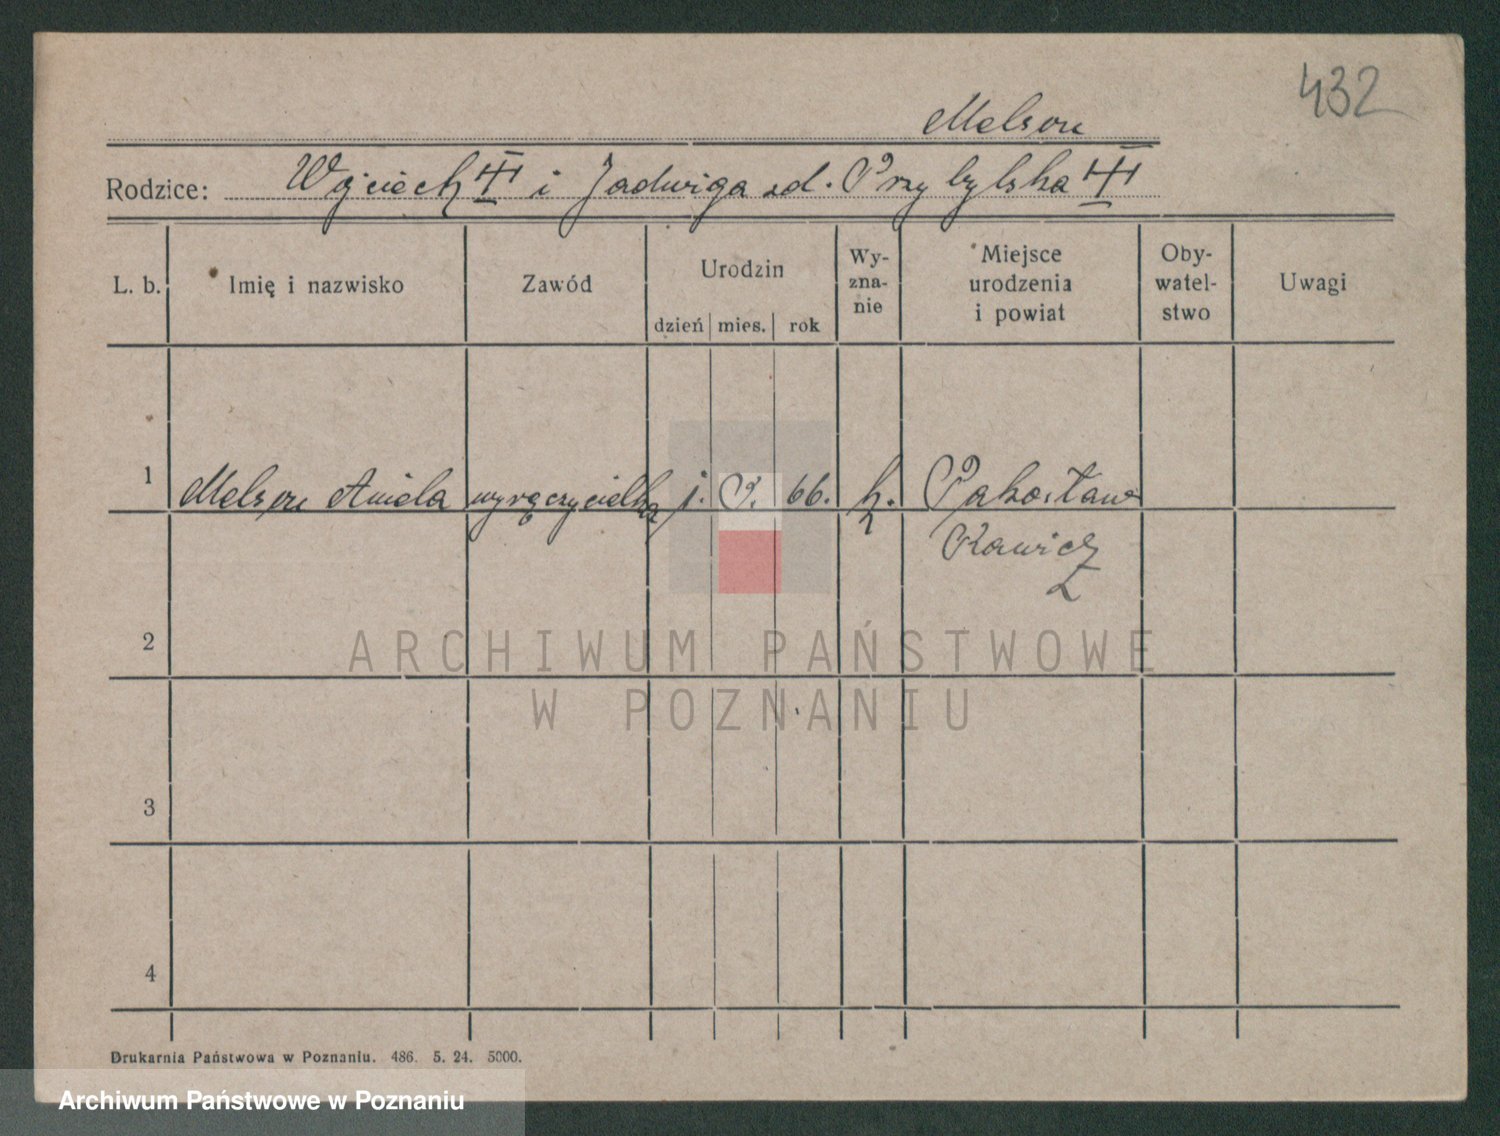 432
Melzer
Rodzice: Wojciech i Jadwiga zd. Przybylska
L. b. Imię i nazwisko Zawód Urodzin dzień mies. rok Wy-zna-nie Miejsce urodzenia i powiat Oby-watel-stwo Uwagi
1 Aniela wyręczycielka 66. k. Pakosław
Rawicz
2
3
4
ARCHIWUM PAŃSTWOWE
W POZNANIU
Drukarnia Państwowa w Poznaniu. 486. 5. 24. 5000.
Archiwum Państwowe w Poznaniu